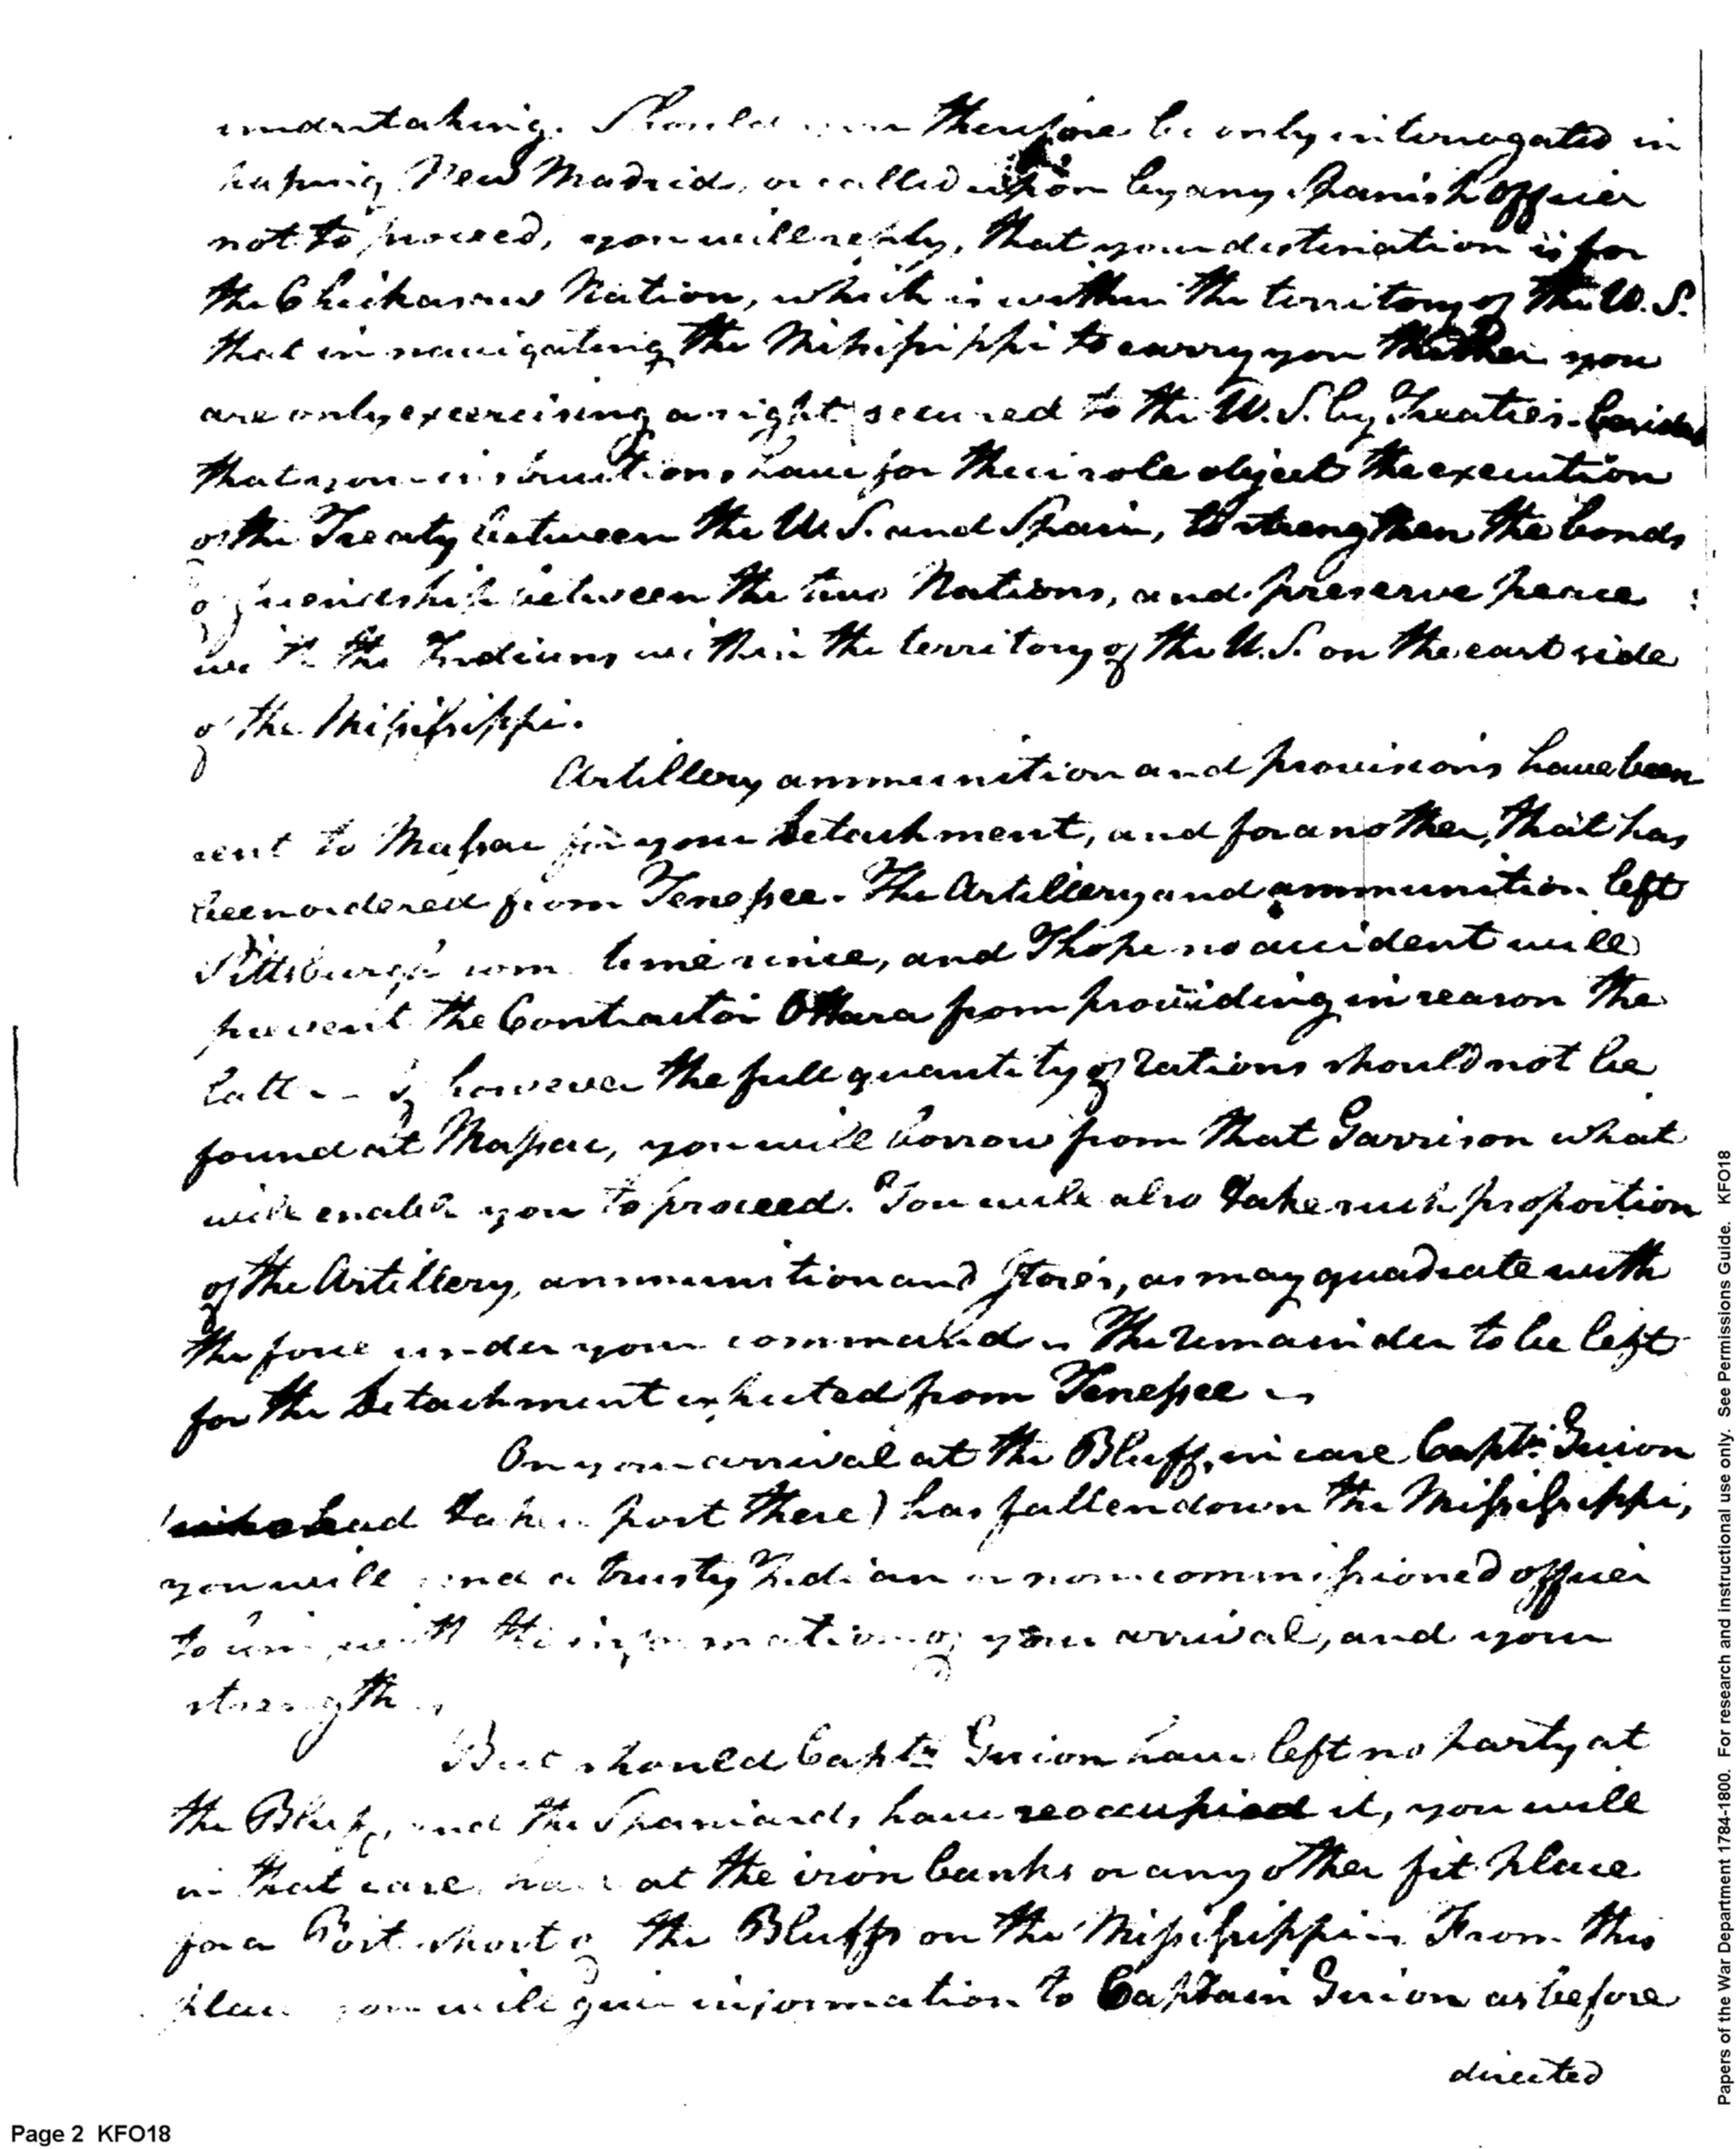 undertaking. Should you therefore be only interrogated in
passing New Madrid, or called upon by any Spanish officer
not to proceed, you will reply, that your destination is for
the Chickasaw Nation, which is within the territory of the U.S.
that in navigating the Missisippi to carry you thither you
are only excercising a right secured to the U.S. by Treaties. besides
that your instructions have for their sole object the execution
of the Treaty between the U.S. and Spain, to strengthen the bonds
of friendship between the two Nations, and preserve peace
with the Indians within the territory of the U.S. on the east side
of the Missisippi.
Artillery ammunition and provisions have been
sent to Massac for your detachment, and for another, that has
been ordered from Tenessee. The Artillery and ammunition left
Pittsburgh some time since, and I hope no accident will
prevent the Contractor OHara from providing in season the
latter If however the full quantity of rations should not be
found at Massac, you will borrow from that Garrison what
will enable you to proceed. You will also take such proportion
of the Artillery, ammunition and Stores, as may quadrate with
the force under your command. The remainder to be left
for the detachment expected from Tenessee
On your arrival at the Bluff, in case Captn. Guion
(who had taken post there) has fallen down the Missisippi,
you will send a trusty Indian or non commissioned officer
to him with the information of your arrival, and your
strength
But should Captn. Guion have left no party at
the Bluff, and the Spaniards have reoccupied it, you will
in that case, halt at the iron banks or any other fit place
for a Post short of the Bluffs on the Missisippi. From this
place you will give information to Captain Guion as before
directed
Page 2 KFO18
Papers of the War Department 1784-1800. For research and instructional use only. See Permissions Guide. KFO18